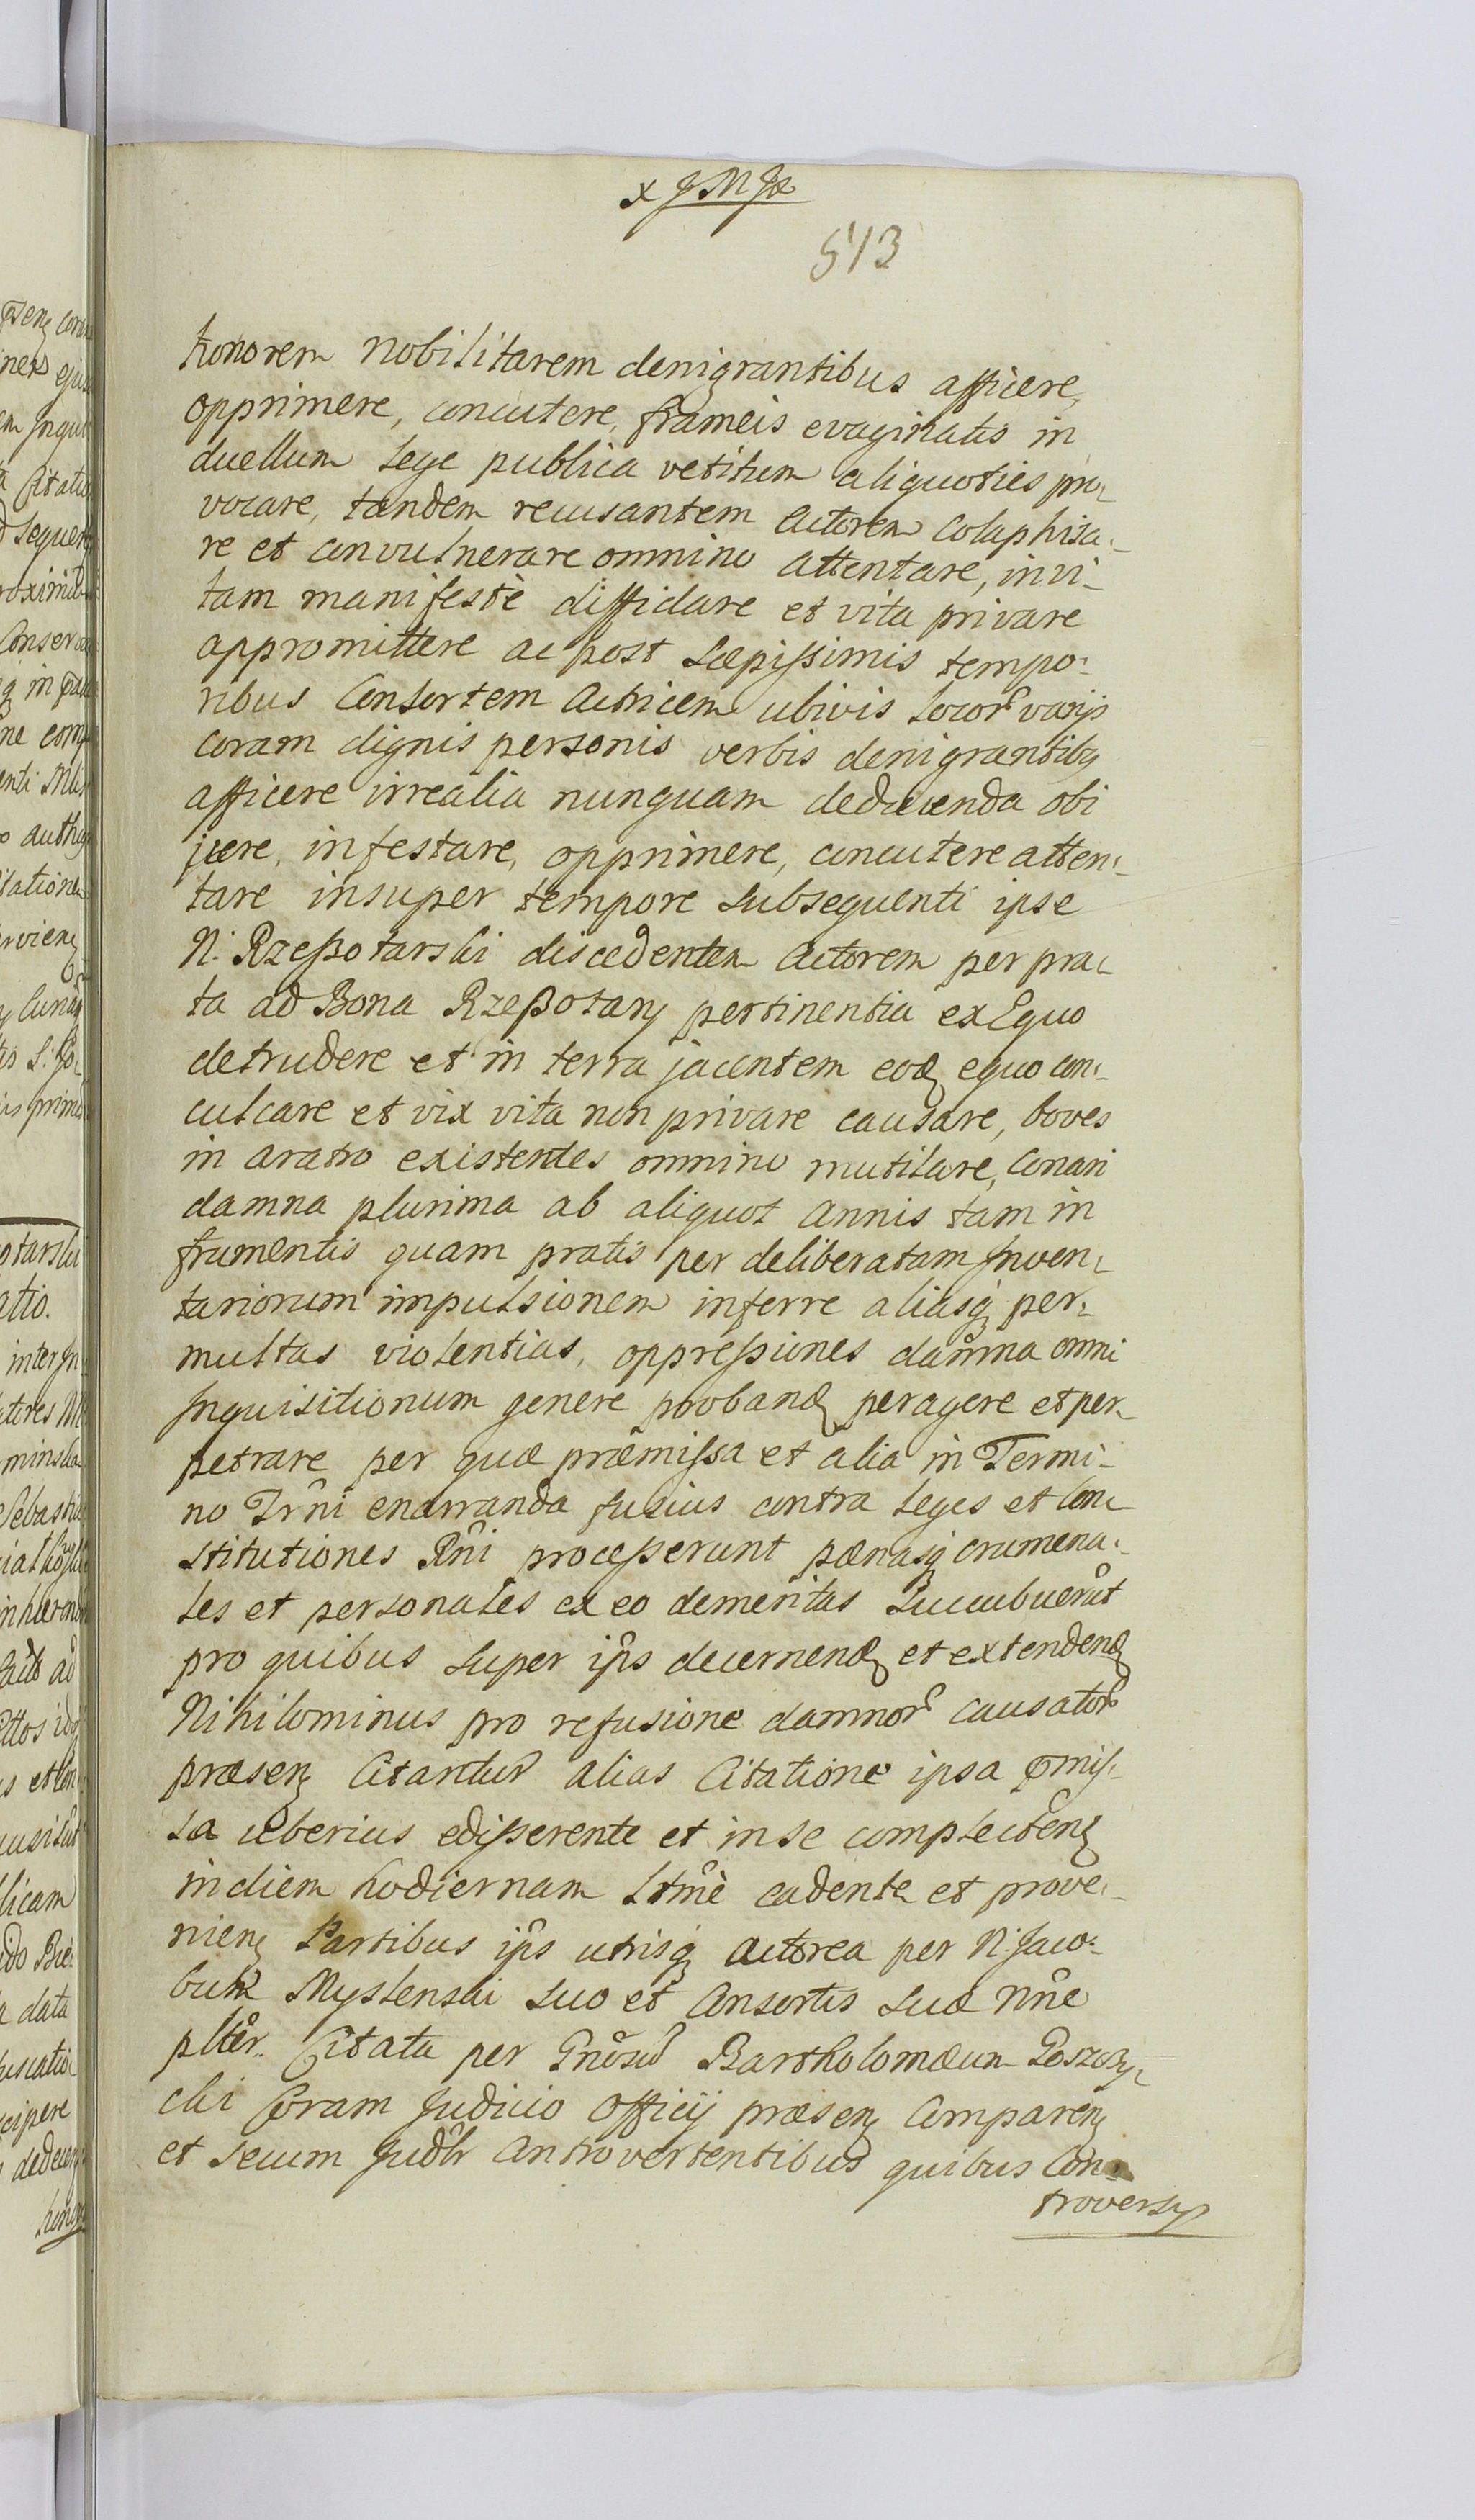 x J M Jœ
543
honorem nobilitarem denigrantibus afficere,
opprimere, concutere, frameis evaginatis in
duellum Lege publica vetitum aliquoties pro-
vocare, tandem recusantem Actorem Colaphisa-
re et convulnerare omnino attentare, invi-
tam manifestè diffidare et vita privare
appromittere ac post Sæpissimis tempo-
ribus Consortem Actricem ubivis locor varijs
coram dignis personis verbis denigrantibq
afficere irrealia nunquam deducenda obi
jicere, infestare, opprimere, concutere atten-
tare insuper tempore subsequenti ipse
N. Rzeßotarski discedentem Actorem per pra-
ta ad Bona Rzeßotary pertinentia ex Equo
detrudere et in terra jacentem eod equo con-
culcare et vix vita non privare causare, boves
in aratro existentes omnino mutilare, Conari
damna plurima ab aliquot Annis tam in
frumentis quam pratis per deliberatam Inven-
tariorum impulsionem inferre aliasq per-
multas violentias, oppressiones damna omni
Inquisitionum genere proband peragere et per-
petrare per quæ præmissa et alia in Termi-
no Trni enarranda fusius contra Leges et Con-
stitutiones Rni processerunt pænasq crumena-
les et personales ex eo demeritas Succubuerut
pro quibus super ips decernend et extendend
Nihilominus pro refusione damnor causator
præsen Citantur alias Citatione ipsa pmis-
sa uberius edisserente et in se complecten
in diem hodiernam Ltmè cadente et prove-
nien Partibus ips utrisq Actorea per N. Jaco-
bum Myslenski suo et Consortis suæ nne
plter. Citata per Gnosu Bartholomæum Goszczy-
cki Coram Judicio Officij præsen Comparen
et secum Judlr Controvertentibus quibus Con-
troversys